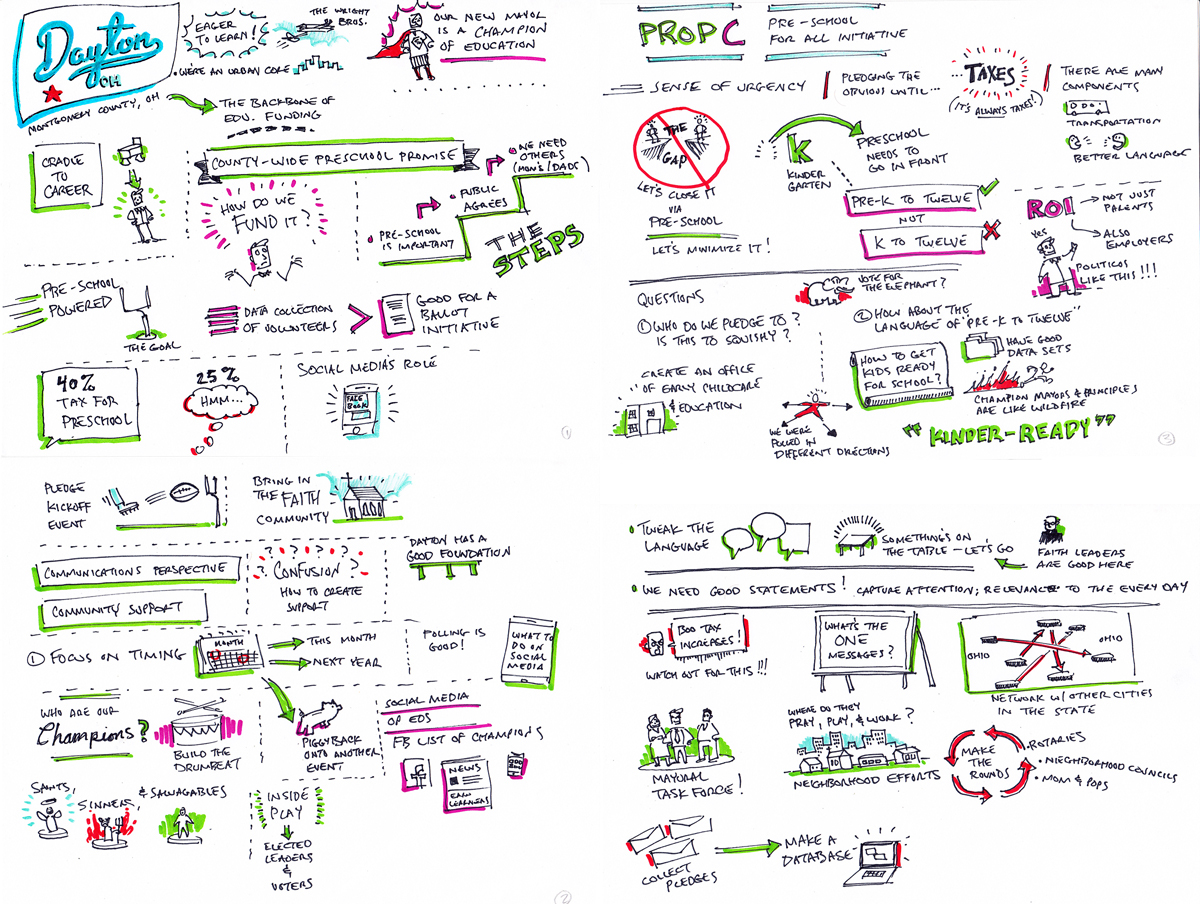 Dayton
OH
EAGER
TO LEARN!
THE WRIGHT
BROS.
• WE'RE AN URBAN CORE
OUR NEW MAYOR
IS A CHAMPION
OF EDUCATION
MONTGOMERY COUNTY, OH
THE BACKBONE OF
EDU. FUNDING
CRADLE
TO
CAREER
COUNTY-WIDE PRESCHOOL PROMISE
HOW DO WE
FUND IT?
• PRE-SCHOOL
IS IMPORTANT
• PUBLIC
AGREES
• WE NEED
OTHERS
(MOM'S/DADS)
THE
STEPS
PRE-SCHOOL
POWERED
THE GOAL
DATA COLLECTION
OF VOLUNTEERS
GOOD FOR A
BALLOT
INITIATIVE
40%
TAX FOR
PRESCHOOL
25%
HMM...
SOCIAL MEDIA'S ROLE
FACE
BOOK
1
PLEDGE
KICKOFF
EVENT
BRING IN
THE FAITH
COMMUNITY
COMMUNICATIONS PERSPECTIVE
COMMUNITY SUPPORT
? ? ? ?
? CONFUSION?
HOW TO CREATE
SUPPORT
DAYTON HAS A
GOOD FOUNDATION
① FOCUS ON TIMING
MONTH
THIS MONTH
NEXT YEAR
POLLING IS
GOOD!
WHAT TO
DO ON
SOCIAL
MEDIA
WHO ARE OUR
Champions?
BUILD THE
DRUMBEAT
PIGGYBACK
ONTO ANOTHER
EVENT
SOCIAL MEDIA
OP EDS
FB LIST OF CHAMPIONS
f
NEWS
EARLY
LEARNING
SAINTS,
SINNERS,
& SALVAGABLES
INSIDE
PLAY
ELECTED
LEADERS
&
VOTERS
2
PROP C
PRE-SCHOOL
FOR ALL INITIATIVE
SENSE OF URGENCY
PLEDGING THE
OBVIOUS UNTIL...
...TAXES
(IT'S ALWAYS TAXES!)
THERE ARE MANY
COMPONENTS
TRANSPORTATION
BETTER LANGUAGE
THE
GAP
LET'S CLOSE IT
VIA
PRE-SCHOOL
LET'S MINIMIZE IT!
K
KINDER
GARTEN
PRESCHOOL
NEEDS TO
GO IN FRONT
PRE-K TO TWELVE
NOT
K TO TWELVE
ROI
NOT JUST
PARENTS
ALSO
EMPLOYERS
YES
POLITICOS
LIKE THIS!!!
QUESTIONS
VOTE FOR
THE ELEPHANT?
① WHO DO WE PLEDGE TO?
IS THIS TO SQUISHY?
② HOW ABOUT THE
LANGUAGE OF "PRE-K TO TWELVE"
CREATE AN OFFICE
OF EARLY CHILDCARE
& EDUCATION
WE WERE
PULLED IN
DIFFERENT DIRECTIONS
HOW TO GET
KIDS READY
FOR SCHOOL?
HAVE GOOD
DATA SETS
CHAMPION MAYORS & PRINCIPLES
ARE LIKE WILDFIRE
"KINDER-READY"
3
• TWEAK THE
LANGUAGE
SOMETHING'S ON
THE TABLE - LET'S GO
FAITH LEADERS
ARE GOOD HERE
• WE NEED GOOD STATEMENTS! CAPTURE ATTENTION; RELEVANCE TO THE EVERY DAY
BOO TAX
INCREASES!
WATCH OUT FOR THIS!!!
WHAT'S THE
ONE
MESSAGES?
OHIO
OHIO
NETWORK W/ OTHER CITIES
IN THE STATE
MAYORAL
TASK FORCE!
WHERE DO THEY
PRAY, PLAY, & WORK?
NEIGHBORHOOD EFFORTS
MAKE
THE
ROUNDS
• ROTARIES
• NIEGHBORHOOD COUNCILS
• MOM & POPS
COLLECT
PLEDGES
MAKE A
DATABASE